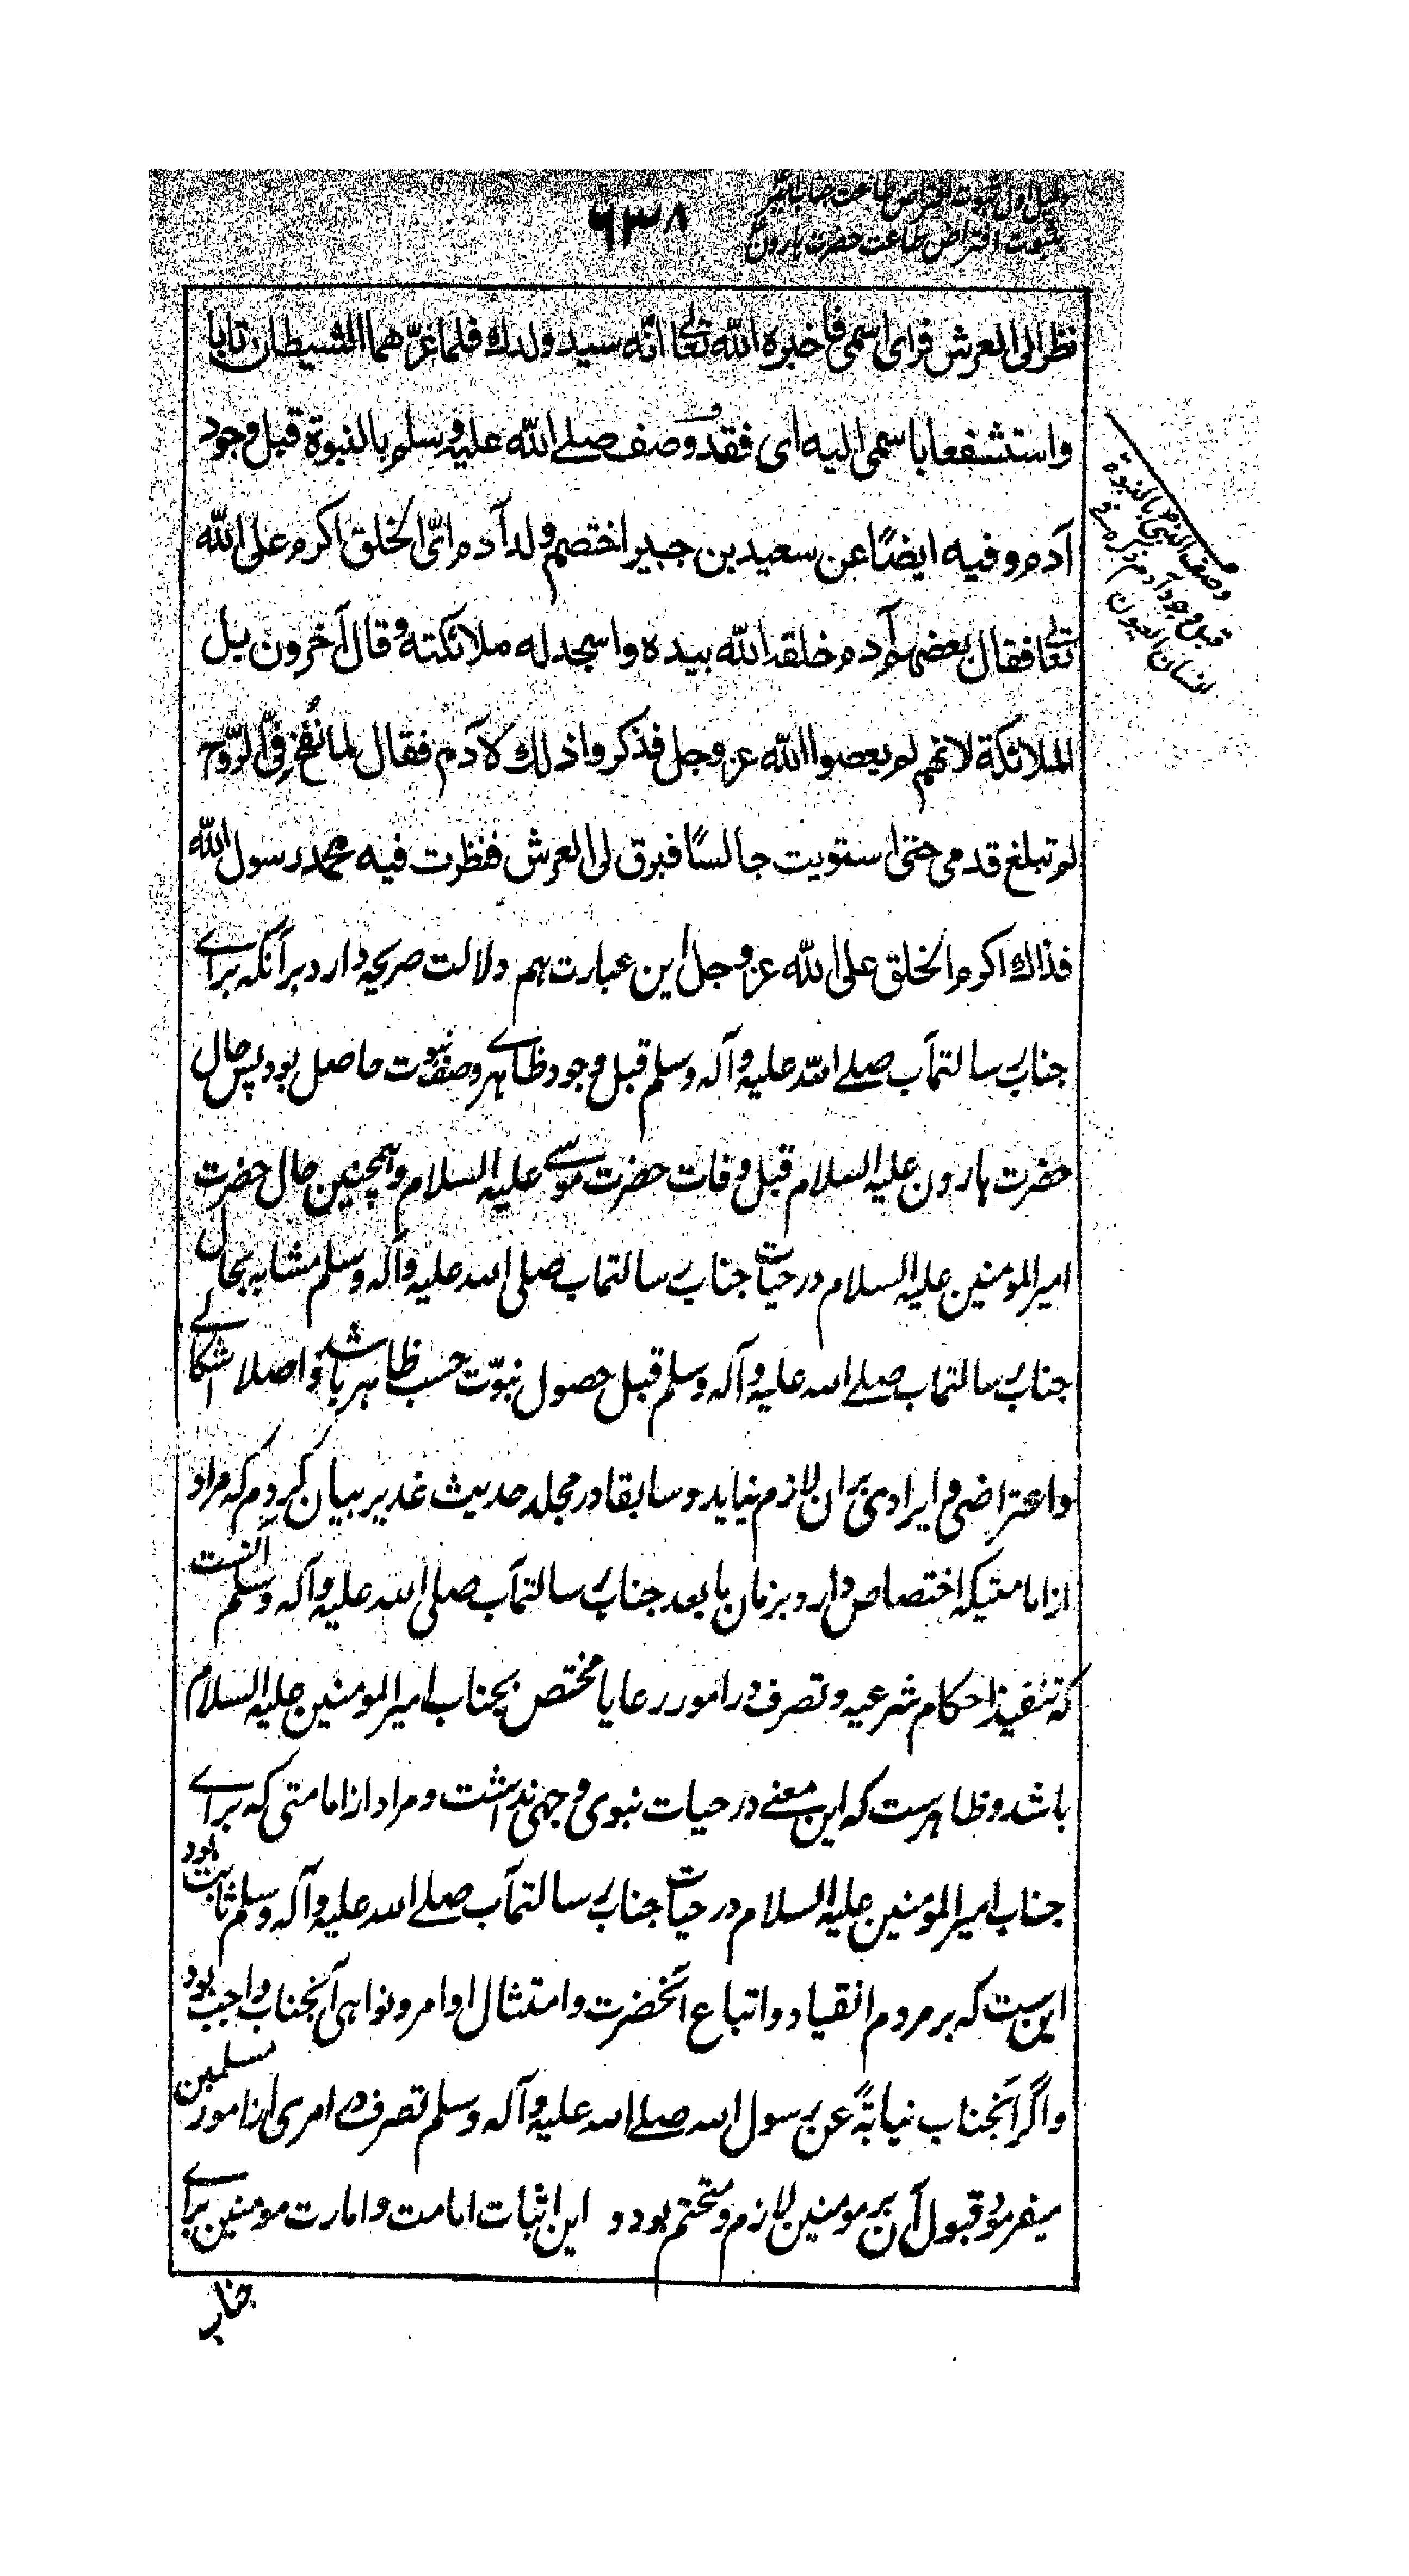 دلیل اول ثبوت افتراض طاعت جناب امیرؑ
بثبوت افتراض طاعت حضرت هارونؑ
۶۳۸
نظر الی العرش فرای اسمی فاخبره الله تعالی انّه سید ولدك فلما غرّهما الشیطان تابا
واستشفعا باسمی الیه ای فقد وصف صلے الله علیه وسلم بالنبوة قبل وجود
آدم وفیه ایضًا عن سعید بن جبیر اختصم ولد آدم ایّ الخلق اکرم علی الله
تعالی فقال بعضهم آدم خلقه الله بیده واسجد له ملائکته وقال آخرون بل
الملائکة لانهم لم یعصوا الله عز وجل فذکروا ذلك لآدم فقال لما نُفخ فِیّ الرّوح
لم تبلغ قدمی حتی استویت جالسًا فبرق لی العرش فنظرت فیه محمد رسول الله
فذاك اکرم الخلق علی الله عز وجل این عبارت هم دلالت صریحه دارد بر آنکه براے
جناب رسالتمآب صلے الله علیه وآله وسلم قبل وجود ظاهرے وصف نبوت حاصل بود پس حال
حضرت هارون علیه السلام قبل وفات حضرت موسے علیه السلام وهمچنین حال حضرت
امیر المومنین علیه السلام در حیات جناب رسالتماب صلی الله علیه وآله وسلم مشابه بحال
جناب رسالتماب صلے الله علیه وآله وسلم قبل حصول نبوّت حسب ظاهر باشد واصلا اشکالے
واعتراضی وایرادی بران لازم نیاید وسابقا در مجلد حدیث غدیر بیان کردم که مراد
از امامتیکه اختصاص دارد بزمان ما بعد جناب رسالتمآب صلی الله علیه وآله وسلم آنست
که تنفیذ احکام شرعیه وتصرف در امور رعایا مختص بجناب امیر المومنین علیه السلام
باشد وظاهرست که این معنے در حیات نبوی وجهی نداشت ومراد از امامتی که براے
جناب امیر المؤمنین علیه السلام در حیات جناب رسالتمآب صلے الله علیه وآله وسلم ثابت بود
این ست که بر مردم انقیاد واتباع آنحضرت وامتثال اوامر ونواهی آنجناب واجب بود
واگر آنجناب نیابةً عن رسول الله صلے الله علیه وآله وسلم تصرف در امری از امور مسلمین
میفرمود قبول آن بر مومنین لازم ومتحتم بود و این اثبات امامت وامارت مومنین براے
جناب
وصف النبیؐ بالنبوة
قبل وجود آدم ذکره فی
انسان العیون